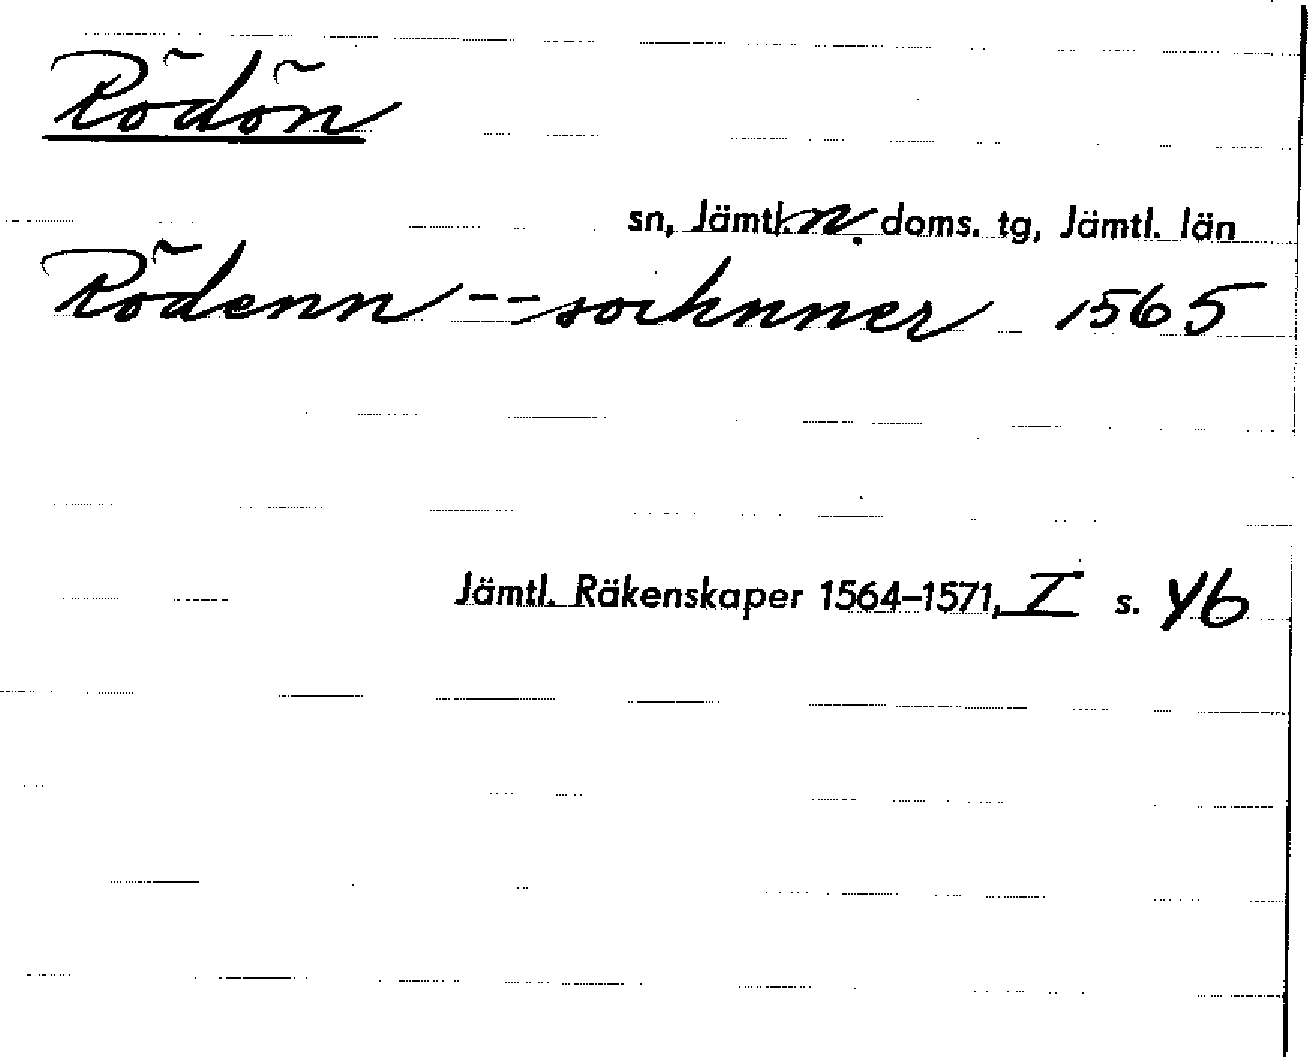 Rödön
sn, Jämtl. n. doms. tg, Jämtl. län
Rödenn -- socknner 1565
Jämtl. Räkenskaper 1564–1571, I s. 46